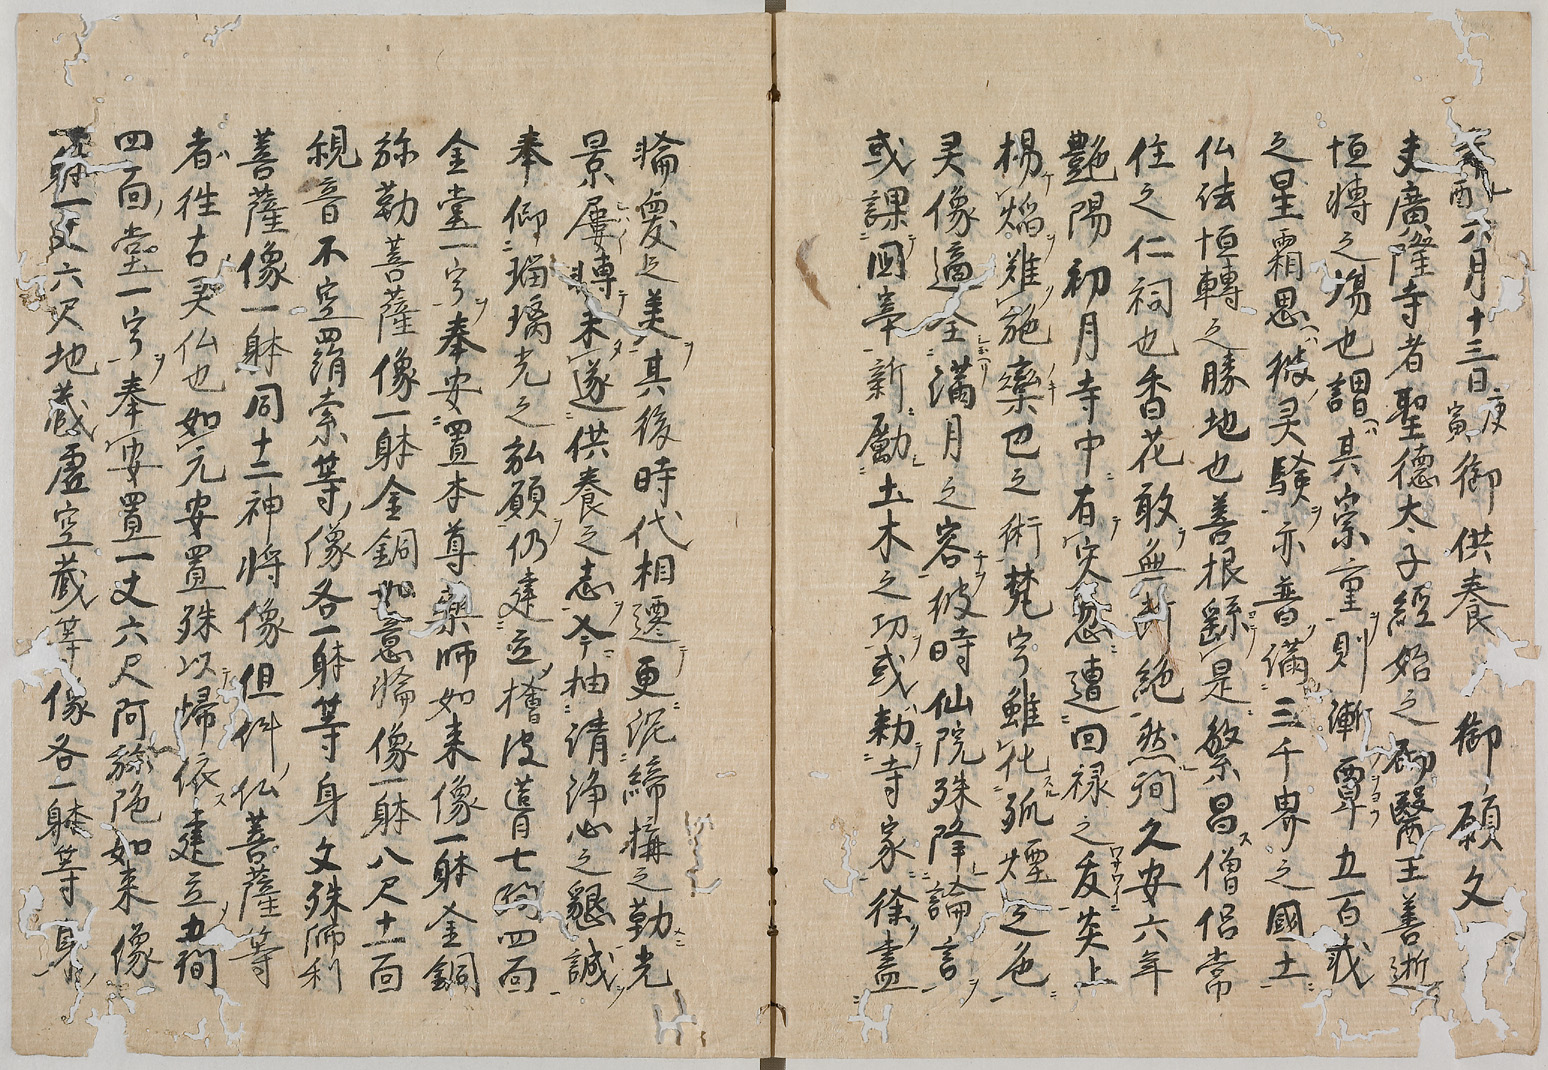 六月十三日庚寅御供養 御願文
夫廣隆寺者聖德太子經始之砌醫王善逝
恒轉之場也謂其宗重則漸覃五百
之星霜思彼灵驗亦普満三千界之國土
仏法恒轉之勝地也善根繇是繁昌僧侶常
住之仁祠也香花敢無断絶然間久安六年
艶陽初月寺中有灾忽遭回禄之灾炎上
楊焔難施欒巴之術梵宇雖化孤煙之色
灵像適全満月之容彼時仙院殊降論言
或課国宰新勵土木之功或勅寺家徐盡
輪奐之美其後時代相遷更泥締搆之勤光
景屡轉未遂供養之志今抽清浄心之懇誠
奉仰瑠璃光之弘願仍建立檜皮葺七間四面
金堂一宇奉安置本尊薬師如来像一躰金銅
弥勒菩薩像一躰金銅如意輪像一躰八尺十一面
観音不空羂索等像各一躰等身文殊師利
菩薩像一躰同十二神将像但件仏菩薩等
者往古灵仏也如元安置殊以帰依建立五間
四面堂一宇奉安置一丈六尺阿弥陁如来像
一躰一丈六尺地蔵虚空蔵等像各一躰等身